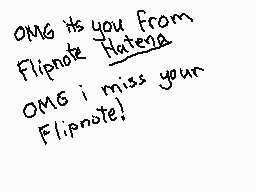 OMG its you from
Flipnote Hatena
OMG i miss your
Flipnote!